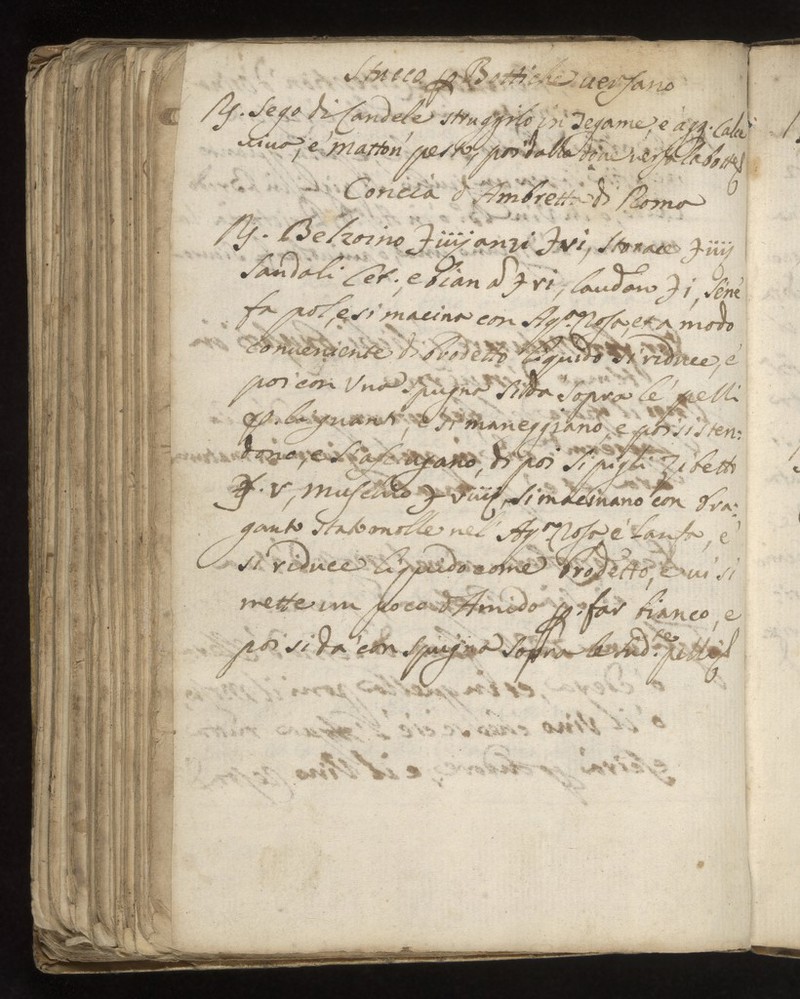 Stucco p Bottiche uersano
R. Sego di Candele struggilo in Tegame, e agg. Calce
uiua, é Matton pesto, poi dalla doue versa la botte
Concia d'Ambretta di Roma
R. Belzoino ℥iiij anzi ℥vi, Storace ℥iiij
Sandali Cet., e bian ℥vi, laudan ℥i, Sene
fa pol, e si macina con Aq. Rosa, et a modo
conueniente di brodetto liquido si riduce, é
poi con Vna spugna si da sopra lé pelli
p. li guanti, e si maneggiano, e poi si sten:
dono, e s'asciugano, di poi si pigli Zibetto
℥. V, Muschio ℥ viiij, si macinano con dra:
ganto stato molle nel' Aq. Rosa, é Lanfa, é
si riduce liquido come brodetto, é ui si
mette un poco d'Amido p. far bianco, e
poi si dà con spugna sopra le sud.te pelli